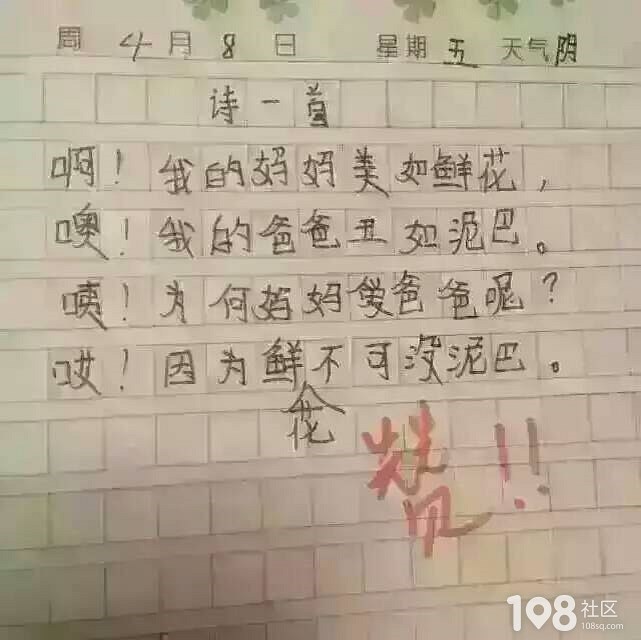 周 4 月 8 日 星期 五 天气 阴
诗一首
啊！我的妈妈美如鲜花，
噢！我的爸爸丑如泥巴。
咦！为何妈妈爱爸爸呢？
哎！因为鲜花不可没泥巴。
赞！！
108社区
108sq.com